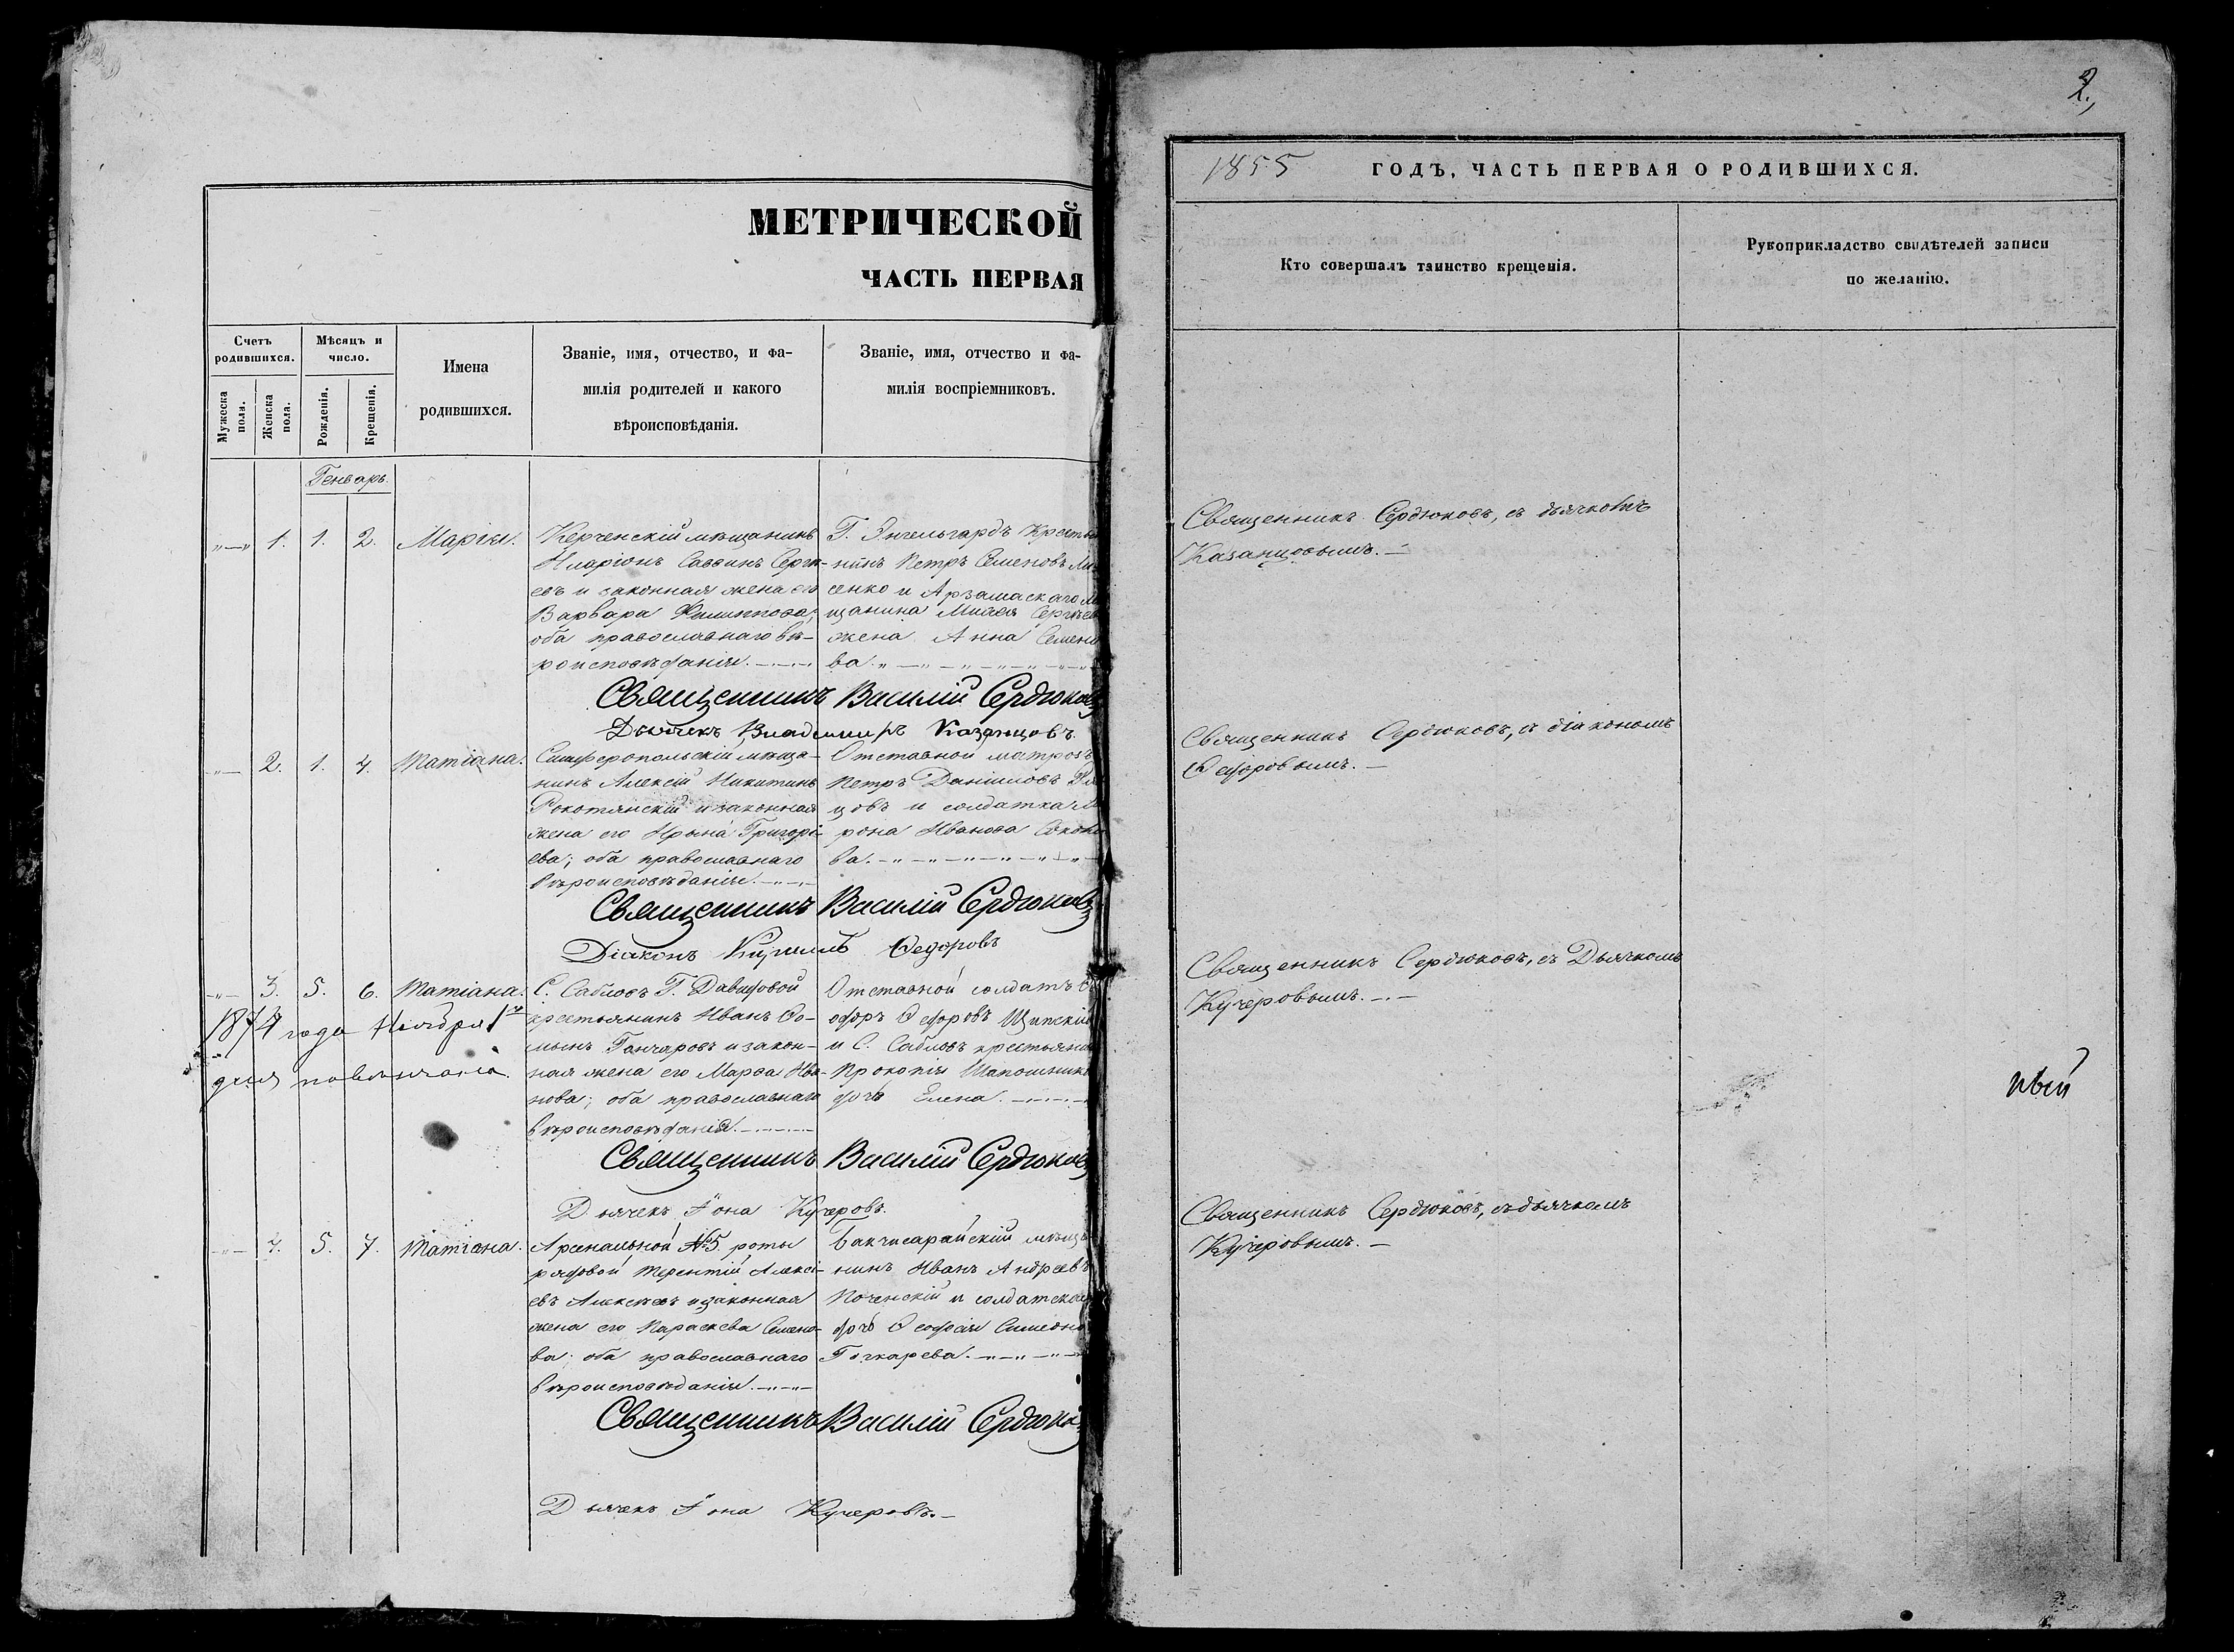 МЕТРИЧЕСКОЙ
ЧАСТЬ ПЕРВАЯ
Счетъ родившихся.
Мужеска пола.
Женска пола.
Мѣсяцъ и число.
Рожденія.
Крещенія.
Имена
родившихся.
Званіе, имя, отчество, и фа-
милія родителей и какого
вѣроисповѣданія.
Званіе, имя, отчество и фа-
милія воспріемниковъ.
Генварь.
„—„ 1. 1. 2. Марія.
Керченскій мѣщанинъ
Иларіонъ Саввинъ Сергѣ-
евъ и законная жена его
Варвара Филиппова;
оба православнаго вѣ-
роисповѣданія.
Г. Энгельгардъ Крестья
нинъ Петръ Семеновъ
сенко и Арзамаскаго
щанина Сергѣев
жена Анна Семено
ва.
Священникъ Василій Сердюковъ
Дьячекъ Владимиръ Казанцовъ.
„— 2. 1. 4. Татіана.
Симферопольскій мѣща-
нинъ Алексій Никитинъ
Рокотянскій и законная
жена его Ирына Григорі-
ева; оба православнаго
вѣроисповѣданія.
Отставной матрозъ
Петръ Даніиловъ
цовъ и солдатка
рона Иванова Соколо
ва.
Священникъ Василій Сердюковъ
Діаконъ Кирилъ Федоровъ
„— 3. 5. 6. Татіана.
С. Сабловъ Г. Давыдовой
крестьянинъ Иванъ Фо-
минъ Гончаровъ и закон-
ная жена его Марфа Ива-
нова; оба православнаго
вѣроисповѣданія.
Отставной солдатъ
одоръ Федоровъ Щипскій
и С. Сабловъ крестьяни
Прокопія Шапошник
дочь Елена.
1874 года Ноября 1го
дня повѣнчана.
Священникъ Василій Сердюковъ
Дьячекъ Іона Кучеровъ.
„— 4. 5. 7. Татіана.
Арсенальной №5 роты
рядовой Терентій Алексі-
евъ Алексѣевъ и законная
жена его Параскева Семено-
ва; оба православнаго
вѣроисповѣданія.
Бакчисарайскій мѣща
нинъ Иванъ Андреевъ
Поченскій и солдатская
дочь Феодосія Симеоно
Гочкарева.
Священникъ Василій Сердюковъ
Дьячекъ Іона Кучеровъ.
2.
1855 ГОДЪ, ЧАСТЬ ПЕРВАЯ О РОДИВШИХСЯ.
Кто совершалъ таинство крещенія.
Рукоприкладство свидѣтелей записи
по желанію.
Священникъ Сердюковъ, съ дьячкомъ
Казанцовымъ.
Священникъ Сердюковъ, съ діакономъ
Федоровымъ.
Священникъ Сердюковъ, съ Дьячкомъ
Кучеровымъ.
Священникъ Сердюковъ, съ дьячкомъ
Кучеровымъ.